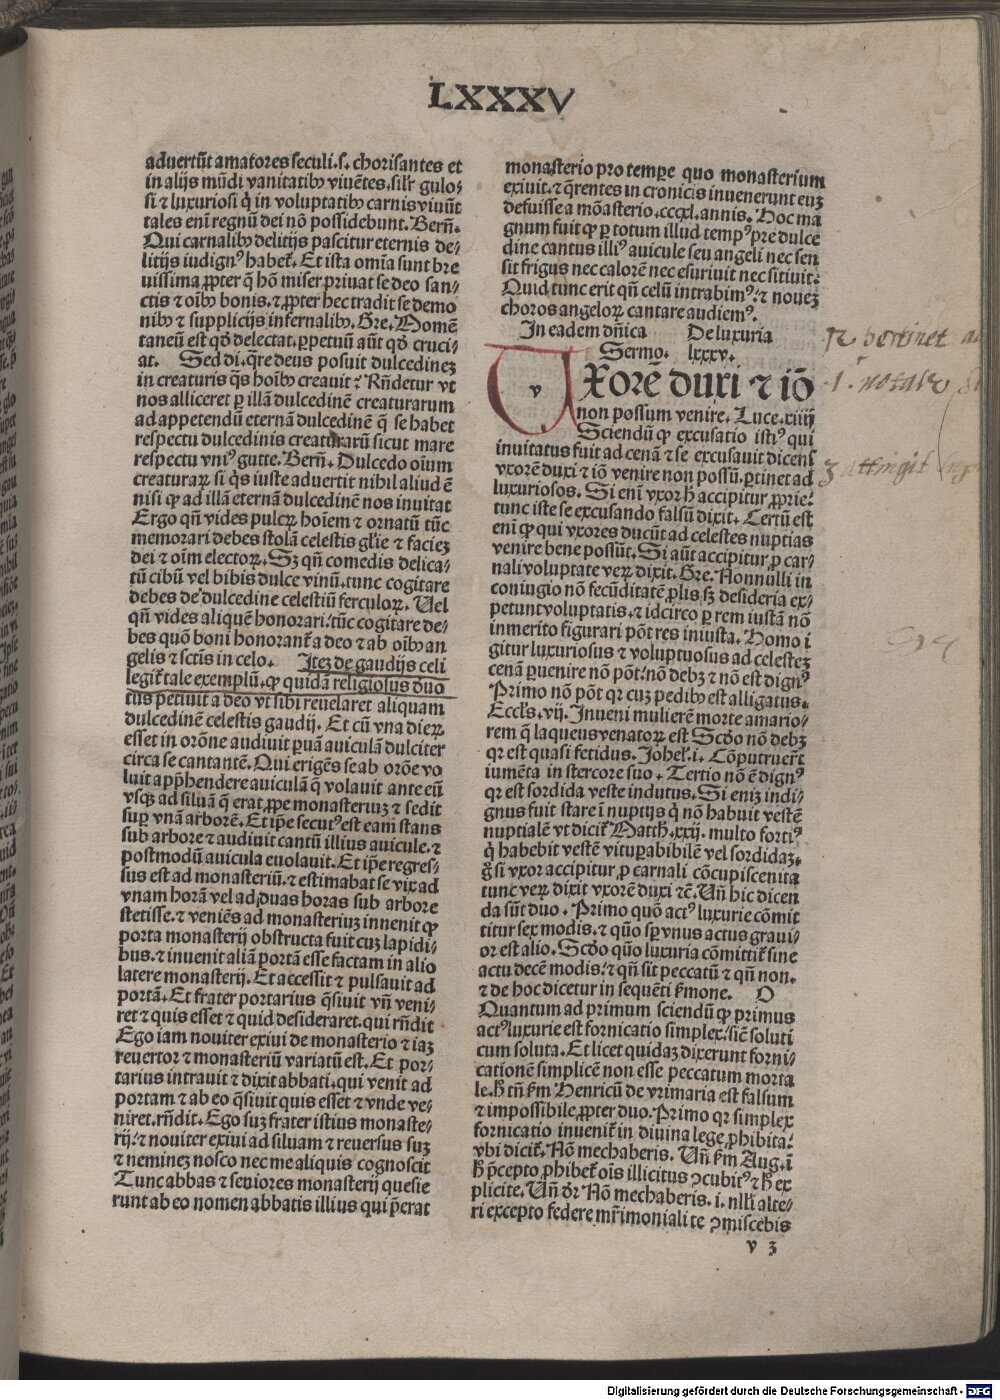 LXXXV
advertūt amatores seculi.s. chorisantes et
in alijs mūdi vanitatibꝰ viuētes.silr̄ gulo⸗
si ⁊ luxuriosi q̇ in voluptatibꝰ carnis viuūt
tales eni regnū dei nō possidebunt. Bern̄.
Qui carnalibꝰ delitijs pascitur eternis de⸗
litijs iudignꝰ habet̄. Et ista om̄ia sunt bre
uissima ꝓpter q̄ hō miser priuat se deo san⸗
ctis ⁊ oībꝰ bonis.⁊ ꝓpter hec tradit se demo
nibꝰ ⁊ supplicijs infernalibꝰ. Gre. Momē
taneū est qd̄ delectat.ꝑpetuū aūt qd̄ cruci⸗
at. Sed di.q̄re deus posuit dulcedinez
in creaturis q̄s hoībꝰ creauit? Rn̄detur vt
nos alliceret ꝑ illā dulcedinē creaturarum
ad appetendū eternā dulcedinē q̄ se habet
respectu dulcedinis creaturarū sicut mare
respectu vniꝰ gutte. Bern̄. Dulcedo oīum
creaturaꝝ si q̄s iuste aduertit nihil aliud ē
nisi ꝙ ad illā eternā dulcedinē nos inuitat
Ergo qn̄ vides pulcrꝝ hoīem ⁊ ornatū tūc
memorari debes stolā celestis gl̄ie ⁊ faciez
dei ⁊ oīm electoꝝ. Sꝫ qn̄ comedis delica⸗
tū cibū vel bibis dulce vinū.tunc cogitare
debes de dulcedine celestiū ferculoꝝ. Uel
qn̄ vides aliquē honorari.tūc cogitare de⸗
bes quō boni honorant̄ a deo ⁊ ab oībꝰ an
gelis ⁊ sctīs in celo. Itez de gaudijs celi
legit̄ tale exemplū.ꝙ quidā religiosus duo
tus petiuit a deo vt sibi reuelaret aliquam
dulcedinē celestis gaudij. Et cū vna dieꝝ
esset in orōne audiuit ꝑuā auiculā dulciter
circa se cantantē. Qui erigēs se ab orōe vo
luit app̄hendere auiculā q̄ volauit ante eū
vsqꝫ ad siluā q̄ erat ꝓpe monasteriuz ⁊ sedit
suꝑ vnā arborē. Et ip̄e secutꝰ est eam stans
sub arbore ⁊ audiuit cantū illius auicule.⁊
postmodū auicula euolauit. Et ip̄e regres⸗
sus est ad monasteriū.⁊ estimabat se vix ad
vnam horā vel ad duas horas sub arbore
stetisse.⁊ veniēs ad monasteriuz innenit ꝙ
porta monasterij obstructa fuit cuz lapidi⸗
bus.⁊ inuenit aliā portā esse factam in alio
latere monasterij. Et accessit ⁊ pulsauit ad
portā. Et frater portarius q̄siuit vn̄ veni⸗
ret ⁊ quis esset ⁊ quid desideraret.qui rn̄dit
Ego iam nouiter exiui de monasterio ⁊ iaz
reuertor ⁊ monasteriū variatū est. Et por⸗
tarius intrauit ⁊ dixit abbati.qui venit ad
portam ⁊ ab eo q̄siuit quis esset ⁊ vnde ve⸗
niret.rn̄dit. Ego suz frater istius monaste⸗
rij.⁊ nouiter exiui ad siluam ⁊ reuersus suz
⁊ neminez nosco nec me aliquis cognoscit
Tunc abbas ⁊ seniores monasterij quesie
runt ab eo nomen abbatis illius qui p̄erat
monasterio pro tempe quo monasterium
exiuit.⁊ q̄rentes in cronicis inuenerunt euz
defuisse a mōasterio.cccxl.annis. Hoc ma
gnum fuit ꝙ ꝑ totum illud tempꝰ pre dulce
dine cantus illiꝰ auicule seu angeli nec sen
sit frigus nec calorē nec esuriuit nec sitiuit.
Quid tunc erit qn̄ celū intrabimꝰ.⁊ nouez
choros angeloꝝ cantare audiemꝰ.
In eadem dn̄ica De luxuria
Sermo. lxxxv.
Uxorē duxi ⁊ iō
non possum venire. Luce.xiiij
Sciendū ꝙ excusatio istiꝰ qui
inuitatus fuit ad cenā ⁊ se excusauit dicens
vxorē duxi ⁊ iō venire non possū.ꝑtinet ad
luxuriosos. Si eni vxor h̄ accipitur ꝓprie.
tunc iste se excusando falsū dixit. Certū est
eni ꝙ qui vxores ducūt ad celestes nuptias
venire bene possūt. Si aūt accipitur ꝑ car⸗
nali voluptate veꝝ dixit. Gre. Nonnulli in
coniugio nō fecūditatē ꝓlis sꝫ desideria ex⸗
petunt voluptatis.⁊ idcirco ꝑ rem iustā nō
inmerito figurari pōt res iniusta. Homo i
gitur luxuriosus ⁊ voluptuosus ad celestez
cenā ꝑuenire nō pōt.nō debꝫ ⁊ nō est dignꝰ
Primo nō pōt qr cuz pedibꝰ est alligatus.
Eccl̄s.vij. Inueni mulierē morte amario⸗
rem q̄ laqueus venatoꝝ est Scd̄o nō debꝫ
qr est quasi fetidus. Johel̄.i. Cōputruer̄t
iumēta in stercore suo. Tertio nō ē dignꝰ
qr est sordida veste indutus. Si eniz indi⸗
gnus fuit stare ī nuptijs q̇ nō habuit vestē
nuptialē vt dicit̄ Matth̄.xxij. multo fortiꝰ
q̇ habebit vestē vituꝑabibilē vel sordidaz.
ḡ si vxor accipitur ꝑ carnali cōcupiscenita
tunc veꝝ dixit vxorē duxi ⁊c̄. Un̄ hic dicen
da sūt duo. Primo quō actꝰ luxurie cōmit
titur sex modis.⁊ quō sp̄ vnus actus graui⸗
or est alio. Scd̄o quō luxuria cōmittit̄ sine
actu decē modis.⁊ qn̄ sit peccatū ⁊ qn̄ non.
⁊ de hoc dicetur in sequēti ẜmone. O
Quantum ad primum sciendū ꝙ primus
actꝰ luxurie est fornicatio simplex.sicē soluti
cum soluta. Et licet quidaz dixerunt forni⸗
cationē simplicē non esse peccatum morta
le.h̄ tn̄ ẜm Henricū de vrimaria est falsum
⁊ impossibile ꝓpter duo. Primo qr simplex
fornicatio inuenit̄ in diuina lege ꝓhibita.
vbi dicit̄. Nō mechaberis. Un̄ ẜm Aug.ī
h̄ p̄cepto ꝓhibet̄ oīs illicitus ꝯcubitꝰ ⁊ h̄ ex
plicite. Un̄ dr̄ Nō mechaberis.i.nlli alte⸗
ri excepto federe mr̄imoniali te ꝯmiscebis
v 3
Digitalisierung gefördert durch die Deutsche Forschungsgemeinschaft - DFG